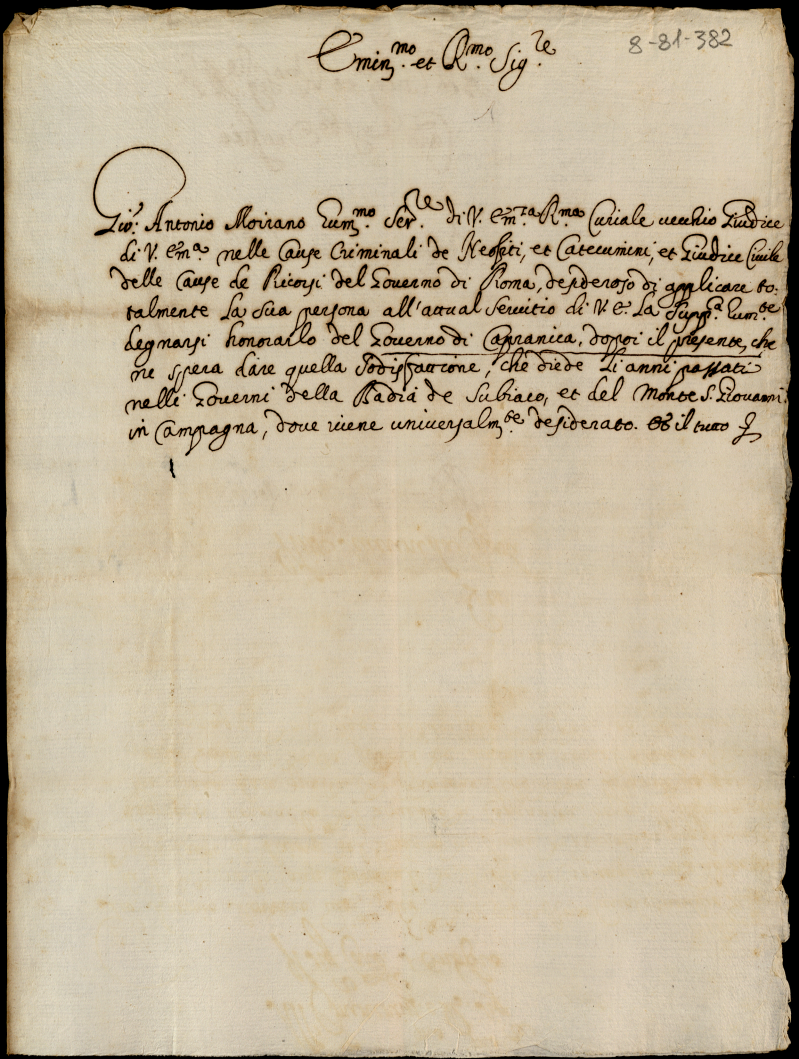 8-81-382
Emin.mo et R.mo Sig.re
Gio: Antonio Moirano Hum.mo Ser.re di V. Em.za R.ma Curiale vecchio Giudice
di V. Em.a nelle Cause Criminali de Neofiti, et Catecumini, et Giudice Civile
delle Cause de Ricorsi del Governo di Roma, desideroso di applicare to-
talmente la sua persona all'attual Servitio di V. E. la Supp.a Hum.te
degnarsi honorarlo del Governo di Capranica, doppoi il presente, che
ne spera dare quella sodisfattione, che diede li anni passati
nelli Governi della Badia de Subiaco, et del Monte S. Giovanni
in Campagna, dove viene universalm.te desiderato. et il tutto